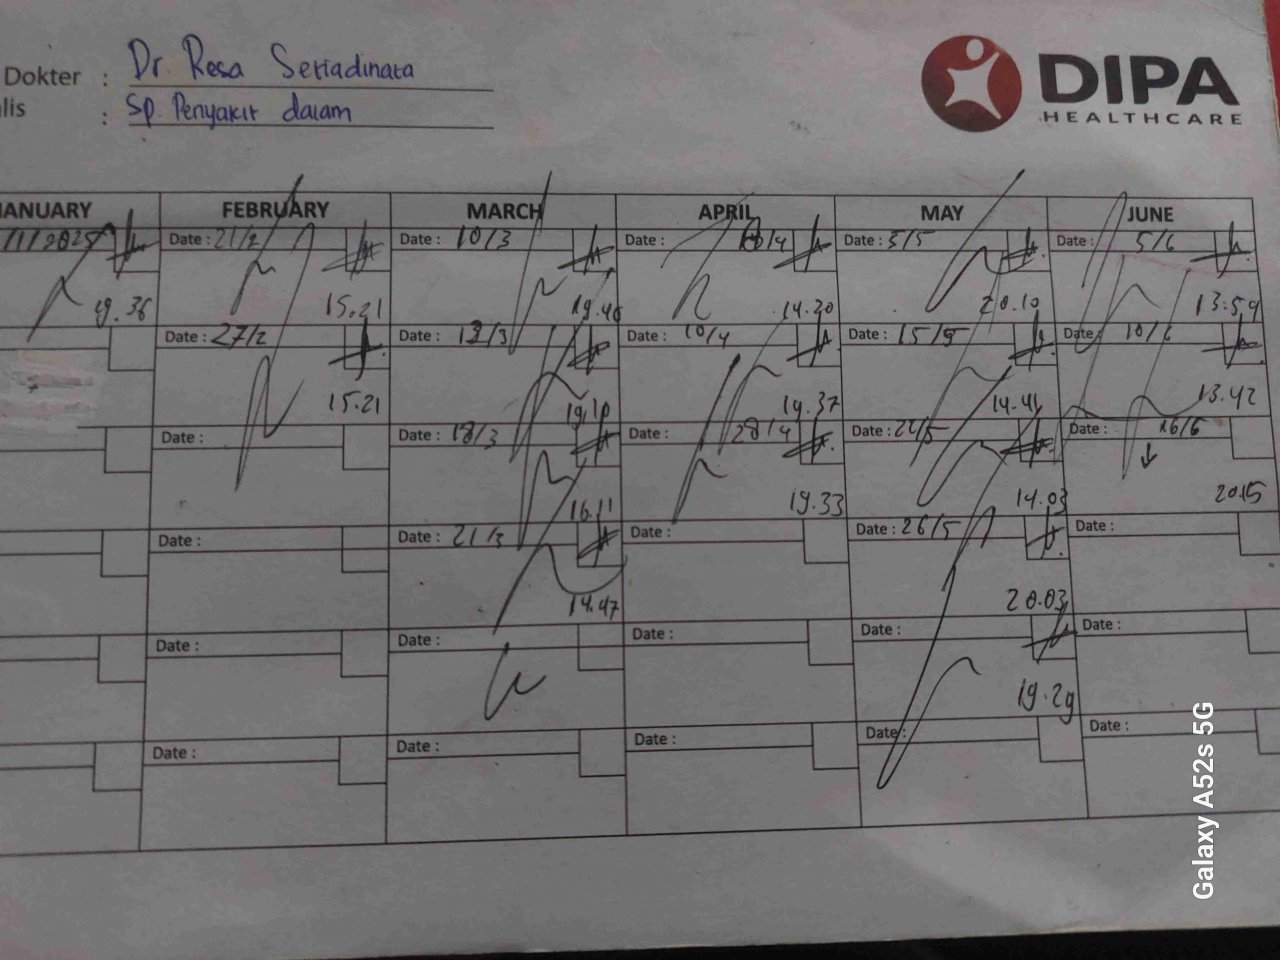 Dokter : Dr. Resa Setiadinata
lis : Sp. Penyakit dalam
DIPA
HEALTHCARE
ANUARY FEBRUARY MARCH APRIL MAY JUNE
/1/2025 Date : 21/2 Date : 10/3 Date : /4 Date : 5/5 Date : 5/6
19.36 15.21 19.46 14.20 20.10 13.59
Date : 27/2 Date : 12/3 10/4 15/5 Date 10/6
15.21 19.10 14.37 14.41 13.42
Date : Date : 18/3 Date : 28/4 Date : 22/5 Date : 16/6
16.11 19.33 14.03 20.15
Date : Date : 21/3 Date : Date : 26/5 Date :
14.47 20.03
Date : Date : Date : Date : Date :
19.29
Date : Date : Date : Date : Date :
Galaxy A52s 5G